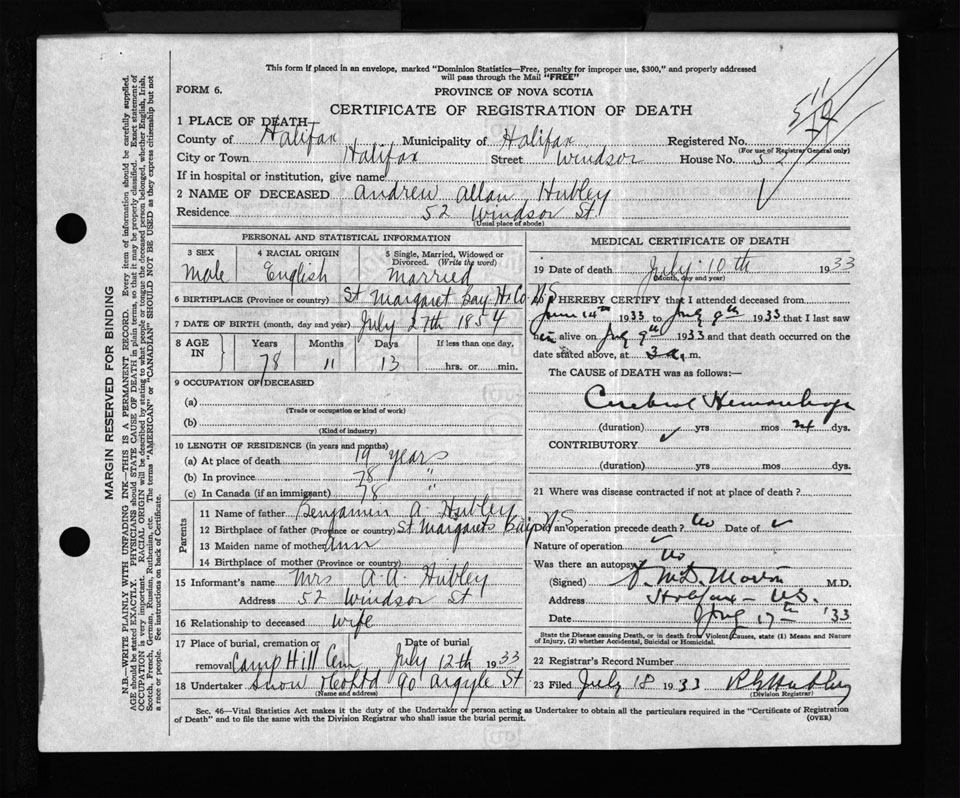 This form if placed in an envelope, marked "Dominion Statistics—Free, penalty for improper use, $300," and properly addressed
will pass through the Mail "FREE"
FORM 6.
PROVINCE OF NOVA SCOTIA
CERTIFICATE OF REGISTRATION OF DEATH
1 PLACE OF DEATH
County of Halifax Municipality of Halifax Registered No.
(For use of Registrar General only)
City or Town Halifax Street Windsor House No. 52
If in hospital or institution, give name
2 NAME OF DECEASED Andrew Allan Hubley
Residence 52 Windsor St
(Usual place of abode)
PERSONAL AND STATISTICAL INFORMATION
3 SEX 4 RACIAL ORIGIN 5 Single, Married, Widowed or Divorced. (Write the word)
Male English Married
6 BIRTHPLACE (Province or country) St Margaret Bay Hx Co NS
7 DATE OF BIRTH (month, day and year) July 27th 1854
8 AGE IN Years Months Days If less than one day,
78 11 13 hrs. or min.
9 OCCUPATION OF DECEASED
(a)
(Trade or occupation or kind of work)
(b)
(Kind of industry)
10 LENGTH OF RESIDENCE (in years and months)
(a) At place of death 19 years
(b) In province 78 "
(c) In Canada (if an immigrant) 78 "
Parents
11 Name of father Benjamin A Hubley
12 Birthplace of father (Province or country) St Margarets Bay NS
13 Maiden name of mother Ann
14 Birthplace of mother (Province or country)
15 Informant's name Mrs A. A. Hubley
Address 52 Windsor St
16 Relationship to deceased wife
17 Place of burial, cremation or removal Camp Hill Cem Date of burial July 12th 1933
18 Undertaker Snow 90 Argyle St
(Name and address)
MEDICAL CERTIFICATE OF DEATH
19 Date of death July 10th 1933
(Month, day and year)
20 I HEREBY CERTIFY that I attended deceased from
June 14th 1933 to July 9th 1933 that I last saw
him alive on July 9th 1933 and that death occurred on the
date stated above, at 3 a. m.
The CAUSE of DEATH was as follows:—
Cerebral Hemorrhage
(duration) yrs mos 24 dys.
CONTRIBUTORY
(duration) yrs. mos. dys.
21 Where was disease contracted if not at place of death?
Did an operation precede death? No Date of
Nature of operation
Was there an autopsy No
(Signed) M.D.
Address Halifax - N.S.
Date July 17th '33
State the Disease causing Death, or in death from Violent Causes, state (1) Means and Nature
of Injury, (2) whether Accidental, Suicidal or Homicidal.
22 Registrar's Record Number
23 Filed July 18 1933 Hubley
(Division Registrar)
Sec. 46—Vital Statistics Act makes it the duty of the Undertaker or person acting as Undertaker to obtain all the particulars required in the "Certificate of Registration
of Death" and to file the same with the Division Registrar who shall issue the burial permit.
(OVER)
MARGIN RESERVED FOR BINDING
N.B.—WRITE PLAINLY WITH UNFADING INK—THIS IS A PERMANENT RECORD. Every item of information should be carefully supplied.
AGE should be stated EXACTLY. PHYSICIANS should STATE CAUSE OF DEATH in plain terms, so that it may be properly classified. Exact statement of
OCCUPATION is very important. RACIAL ORIGIN will be described by stating to what people or tongue the deceased person belonged, whether English, Irish,
Scotch, French, German, Russian, Ruthenian, etc. The terms "AMERICAN" or "CANADIAN" SHOULD NOT BE USED as they express citizenship but not
a race or people. See instructions on back of Certificate.